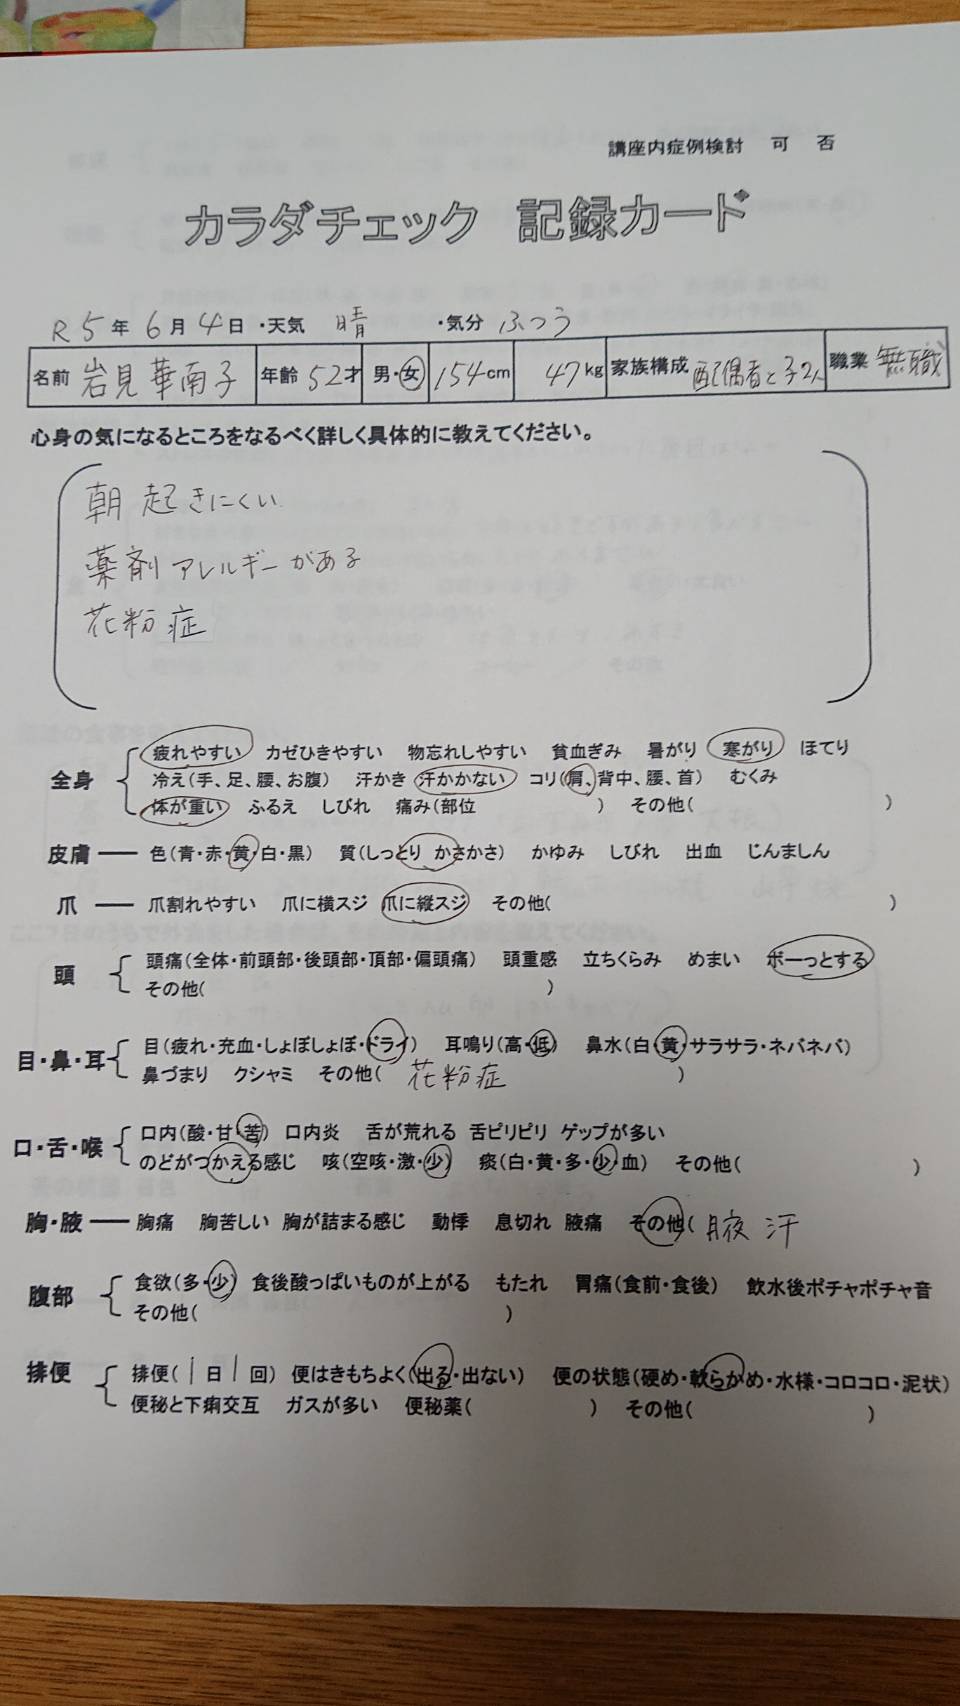 講座内症例検討 可 否
カラダチェック 記録カード
R5年6月4日・天気 晴 ・気分 ふつう
名前 岩見華南子 年齢 52才 男・女 154cm 47kg 家族構成 配偶者と子2人 職業 無職
心身の気になるところをなるべく詳しく具体的に教えてください。
朝起きにくい
薬剤アレルギーがある
花粉症
疲れやすい カゼひきやすい 物忘れしやすい 貧血ぎみ 暑がり 寒がり ほてり
全身 冷え(手、足、腰、お腹) 汗かき 汗かかない コリ(肩、背中、腰、首) むくみ
体が重い ふるえ しびれ 痛み(部位 ) その他( )
皮膚 ── 色(青・赤・黄・白・黒) 質(しっとり かさかさ) かゆみ しびれ 出血 じんましん
爪 ── 爪割れやすい 爪に横スジ 爪に縦スジ その他( )
頭 頭痛(全体・前頭部・後頭部・頂部・偏頭痛) 頭重感 立ちくらみ めまい ボーっとする
その他( )
目・鼻・耳 目(疲れ・充血・しょぼしょぼ・ドライ) 耳鳴り(高・低) 鼻水(白・黄・サラサラ・ネバネバ)
鼻づまり クシャミ その他( 花粉症 )
口・舌・喉 口内(酸・甘・苦) 口内炎 舌が荒れる 舌ピリピリ ゲップが多い
のどがつかえる感じ 咳(空咳・激・少) 痰(白・黄・多・少・血) その他( )
胸・腋 ── 胸痛 胸苦しい 胸が詰まる感じ 動悸 息切れ 腋痛 その他( 腋汗
腹部 食欲(多・少) 食後酸っぱいものが上がる もたれ 胃痛(食前・食後) 飲水後ポチャポチャ音
その他( )
排便 排便(1日1回) 便はきもちよく(出る・出ない) 便の状態(硬め・軟らかめ・水様・コロコロ・泥状)
便秘と下痢交互 ガスが多い 便秘薬( ) その他( )